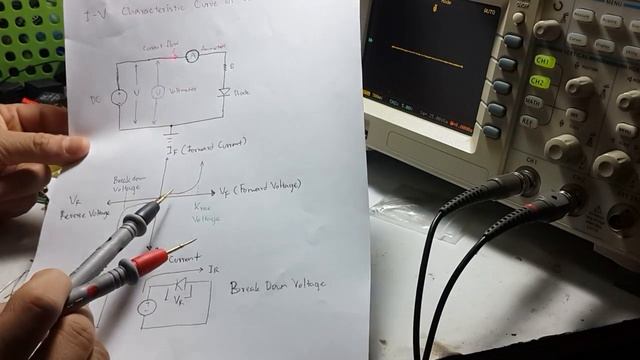 I-V Characteristic Curve of
Current flow
Ammeter
A
DC
V
V
Voltmeter
Diode
IF (Forward Current)
Break down
Voltage
VR
Reverse Voltage
VF (Forward Voltage)
Knee
Voltage
Current
IR
VR
Break Down Voltage
AUTO
MENU
CH1
CH2
MATH
REF
CH1